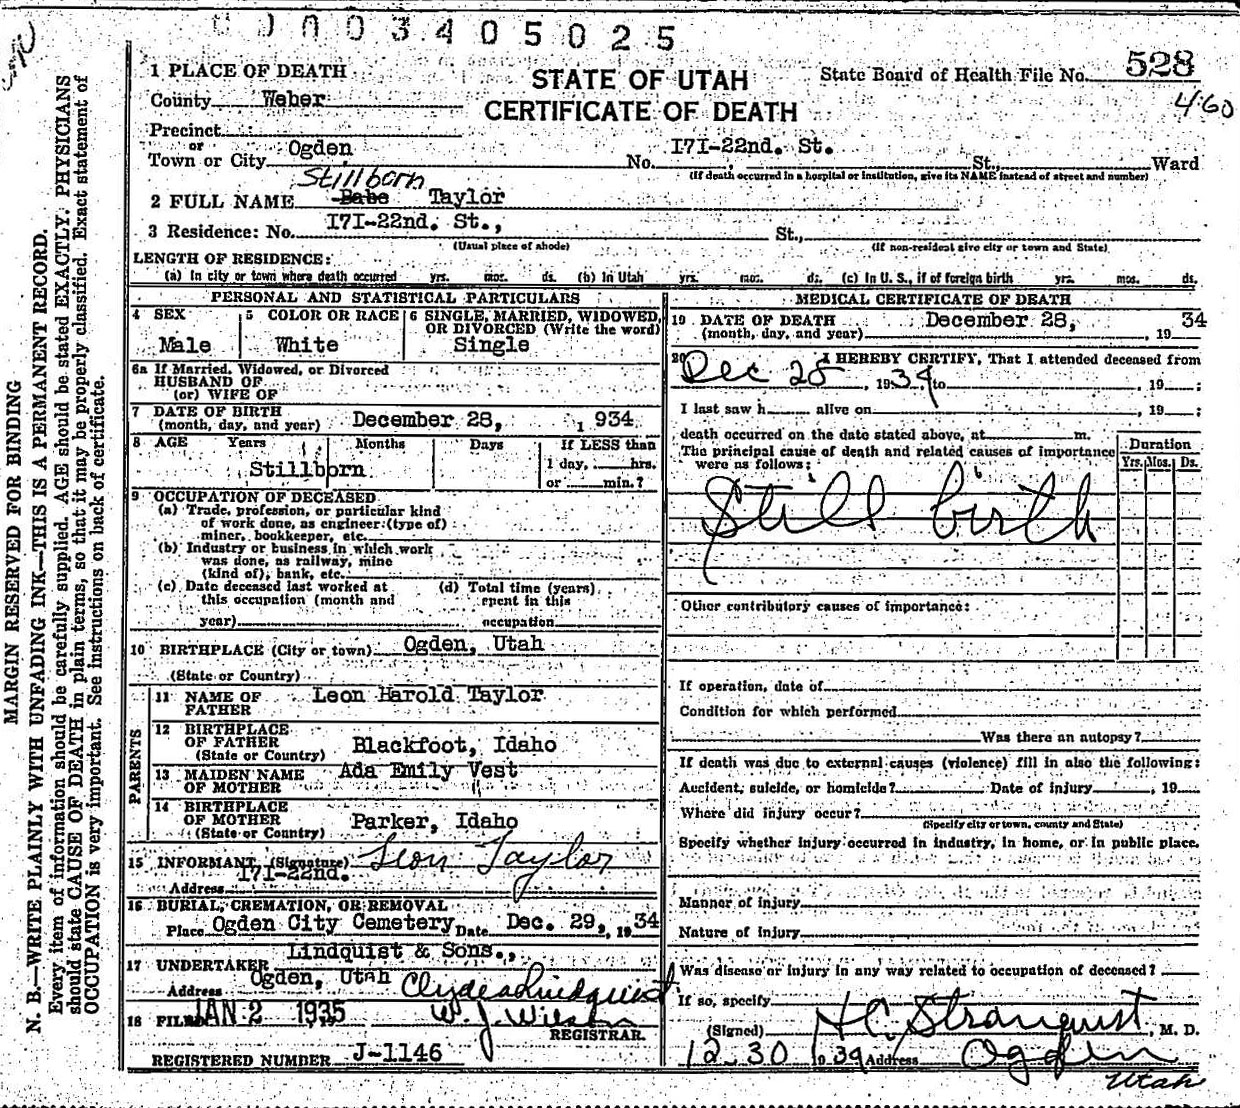 0003405025
1 PLACE OF DEATH
STATE OF UTAH
CERTIFICATE OF DEATH
State Board of Health File No. 528
460
County Weber
Precinct
or
Town or City Ogden, No. 171-22nd. St. St., Ward
(If death occurred in a hospital or institution, give its NAME instead of street and number)
Stillborn
2 FULL NAME Babe Taylor
3 Residence: No. 171-22nd. St., St.,
(Usual place of abode) (If non-resident give city or town and State)
LENGTH OF RESIDENCE:
(a) In city or town where death occurred yrs. mos. ds. (b) In Utah yrs. mos. ds. (c) In U. S., if of foreign birth yrs. mos. ds.
PERSONAL AND STATISTICAL PARTICULARS
4 SEX 5 COLOR OR RACE 6 SINGLE, MARRIED, WIDOWED,
OR DIVORCED (Write the word)
Male White Single
6a If Married, Widowed, or Divorced
HUSBAND OF
(or) WIFE OF
7 DATE OF BIRTH
(month, day, and year) December 28, 1934
8 AGE Years Months Days If LESS than
1 day, hrs.
or min.?
Stillborn
9 OCCUPATION OF DECEASED
(a) Trade, profession, or particular kind
of work done, as engineer (type of)
miner, bookkeeper, etc.
(b) Industry or business in which work
was done, as railway, mine
(kind of), bank, etc.
(c) Date deceased last worked at (d) Total time (years)
this occupation (month and spent in this
year) occupation
10 BIRTHPLACE (City or town) Ogden, Utah
(State or Country)
PARENTS
11 NAME OF Leon Harold Taylor
FATHER
12 BIRTHPLACE
OF FATHER Blackfoot, Idaho
(State or Country)
13 MAIDEN NAME Ada Emily Vest
OF MOTHER
14 BIRTHPLACE
OF MOTHER Parker, Idaho
(State or Country)
15 INFORMANT (Signature) Leon Taylor
171-22nd.
Address
16 BURIAL, CREMATION, OR REMOVAL
Place Ogden City Cemetery Date Dec. 29, 1934
Lindquist & Sons.,
17 UNDERTAKER
Address Ogden, Utah Clyde Lindquist
18 FILED JAN 2 1935 W. J. Wilson
REGISTRAR.
REGISTERED NUMBER J-1146
MEDICAL CERTIFICATE OF DEATH
19 DATE OF DEATH December 28,
(month, day, and year) 1934
20 I HEREBY CERTIFY, That I attended deceased from
Dec 28, 1934, to , 19 ;
I last saw h alive on , 19 ;
death occurred on the date stated above, at m.
The principal cause of death and related causes of importance
were as follows: Duration
Yrs. Mos. Ds.
Still birth
Other contributory causes of importance:
If operation, date of
Condition for which performed
Was there an autopsy?
If death was due to external causes (violence) fill in also the following:
Accident, suicide, or homicide? Date of injury , 19
Where did injury occur?
(Specify city or town, county and State)
Specify whether injury occurred in industry, in home, or in public place.
Manner of injury
Nature of injury
Was disease or injury in any way related to occupation of deceased?
If so, specify
(Signed) H C Stranquist, M. D.
12.30 1934 Address Ogden
Utah
MARGIN RESERVED FOR BINDING
N. B.—WRITE PLAINLY WITH UNFADING INK—THIS IS A PERMANENT RECORD.
Every item of information should be carefully supplied. AGE should be stated EXACTLY. PHYSICIANS
should state CAUSE OF DEATH in plain terms, so that it may be properly classified. Exact statement of
OCCUPATION is very important. See instructions on back of certificate.